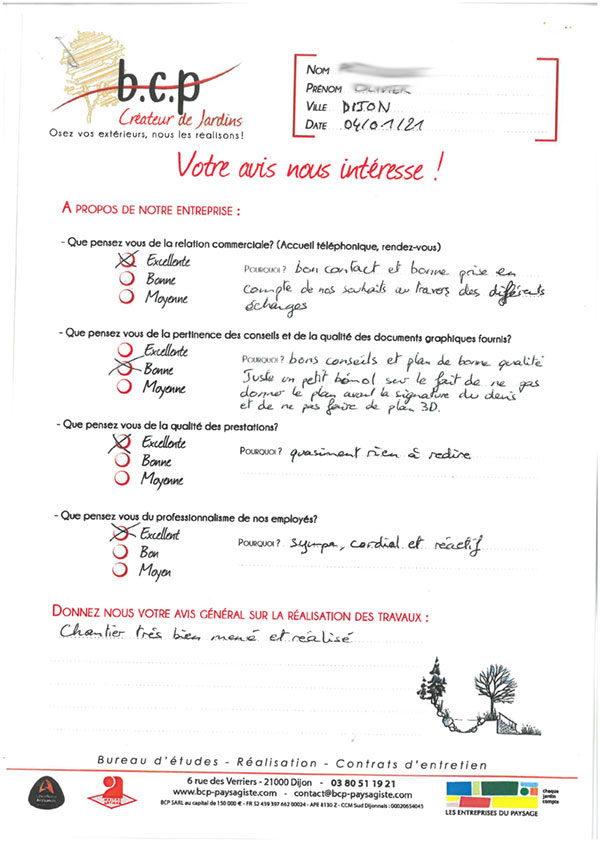 b.c.p
Créateur de Jardins
Osez vos extérieurs, nous les réalisons!
NOM
PRÉNOM OLIVIER
VILLE DIJON
DATE 04/01/21
Votre avis nous intéresse !
A PROPOS DE NOTRE ENTREPRISE :
- Que pensez vous de la relation commerciale? (Accueil téléphonique, rendez-vous)
Excellente
Bonne
Moyenne
POURQUOI ? bon contact et bonne prise en
compte de nos souhaits au travers des différents
échanges
- Que pensez vous de la pertinence des conseils et de la qualité des documents graphiques fournis?
Excellente
Bonne
Moyenne
POURQUOI ? bons conseils et plan de bonne qualité
Juste un petit bémol sur le fait de ne pas
donner le plan avant la signature du devis
et de ne pas faire de plan 3D.
- Que pensez vous de la qualité des prestations?
Excellente
Bonne
Moyenne
POURQUOI ? quasiment rien à redire
- Que pensez vous du professionnalisme de nos employés?
Excellent
Bon
Moyen
POURQUOI ? sympa, cordial et réactif
DONNEZ NOUS VOTRE AVIS GÉNÉRAL SUR LA RÉALISATION DES TRAVAUX :
Chantier très bien mené et réalisé
Bureau d'études - Réalisation - Contrats d'entretien
6 rue des Verriers - 21000 Dijon - 03 80 51 19 21
www.bcp-paysagiste.com - contact@bcp-paysagiste.com
BCP SARL au capital de 150 000 € - FR 52 439 397 662 00024 - APE 8130 Z - CCM Sud Dijonnais : 00020654045
LES ENTREPRISES DU PAYSAGE
chaque
jardin
compte